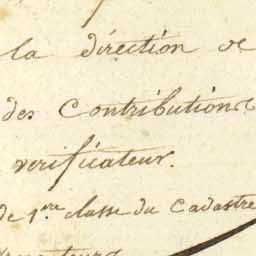 la direction de
des Contributions
verificateur.
de 1.re classe du Cadastre